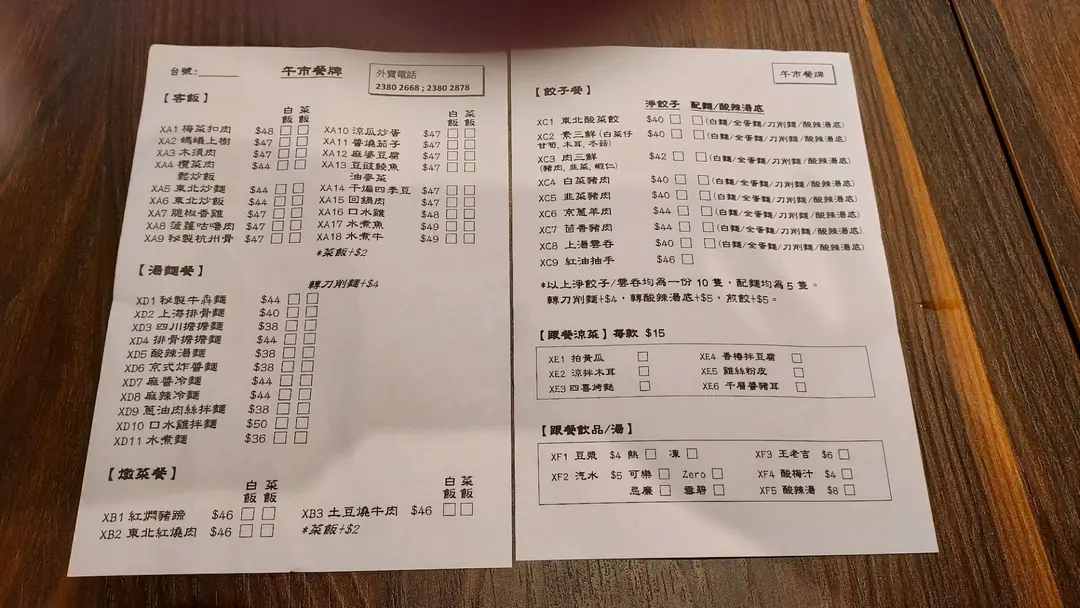 台號:______ 午市餐牌 外賣電話
2380 2668 ; 2380 2878
【客飯】
白飯 菜飯 白飯 菜飯
XA1 梅菜扣肉 $48 □ □ XA10 涼瓜炒蛋 $47 □ □
XA2 螞蟻上樹 $47 □ □ XA11 醬燒茄子 $47 □ □
XA3 木須肉 $47 □ □ XA12 麻婆豆腐 $47 □ □
XA4 欖菜肉 $44 □ XA13 豆豉鯪魚 $47 □ □
鬆炒飯 油麥菜
XA5 東北炒麵 $44 □ □ XA14 干煸四季豆 $47 □ □
XA6 東北炒飯 $44 □ □ XA15 回鍋肉 $47 □ □
XA7 脆椒香雞 $47 □ □ XA16 口水雞 $48 □ □
XA8 菠蘿咕嚕肉 $47 □ □ XA17 水煮魚 $49 □ □
XA9 秘製杭州骨 $47 □ □ XA18 水煮牛 $49 □ □
*菜飯+$2
【湯麵餐】
轉刀削麵+$4
XD1 秘製牛𦟌麵 $44 □ □
XD2 上海排骨麵 $40 □ □
XD3 四川擔擔麵 $38 □ □
XD4 排骨擔擔麵 $44 □ □
XD5 酸辣湯麵 $38 □ □
XD6 京式炸醬麵 $38 □ □
XD7 麻醬冷麵 $44 □ □
XD8 麻辣冷麵 $44 □ □
XD9 蔥油肉絲拌麵 $38 □ □
XD10 口水雞拌麵 $50 □ □
XD11 水煮麵 $36 □ □
【燉菜餐】
白飯 菜飯 白飯 菜飯
XB1 紅燜豬蹄 $46 □ □ XB3 土豆燒牛肉 $46 □ □
XB2 東北紅燒肉 $46 □ □ *菜飯+$2
午市餐牌
【餃子餐】
淨餃子 配麵/酸辣湯底
XC1 東北酸菜餃 $40 □ □(白麵/全蛋麵/刀削麵/酸辣湯底)
XC2 素三鮮(白菜仔 $40 □ □(白麵/全蛋麵/刀削麵/酸辣湯底)
甘筍,木耳,冬菇)
XC3 肉三鮮 $42 □ □(白麵/全蛋麵/刀削麵/酸辣湯底)
(豬肉,韭菜,蝦仁)
XC4 白菜豬肉 $40 □ □(白麵/全蛋麵/刀削麵/酸辣湯底)
XC5 韭菜豬肉 $40 □ □(白麵/全蛋麵/刀削麵/酸辣湯底)
XC6 京蔥羊肉 $44 □ □(白麵/全蛋麵/刀削麵/酸辣湯底)
XC7 茴香豬肉 $44 □ □(白麵/全蛋麵/刀削麵/酸辣湯底)
XC8 上湯雲吞 $40 □ □(白麵/全蛋麵/刀削麵/酸辣湯底)
XC9 紅油抽手 $46 □
*以上淨餃子/雲吞均為一份 10 隻,配麵均為 5 隻。
轉刀削麵+$4,轉酸辣湯底+$5,煎餃+$5。
【跟餐涼菜】每款 $15
XE1 拍黃瓜 □ XE4 香椿拌豆腐 □
XE2 涼拌木耳 □ XE5 雞絲粉皮 □
XE3 四喜烤麩 □ XE6 千層醬豬耳 □
【跟餐飲品/湯】
XF1 豆漿 $4 熱 □ 凍 □ XF3 王老吉 $6 □
XF2 汽水 $5 可樂 □ Zero □ XF4 酸梅汁 $4 □
忌廉 □ 雪碧 □ XF5 酸辣湯 $8 □